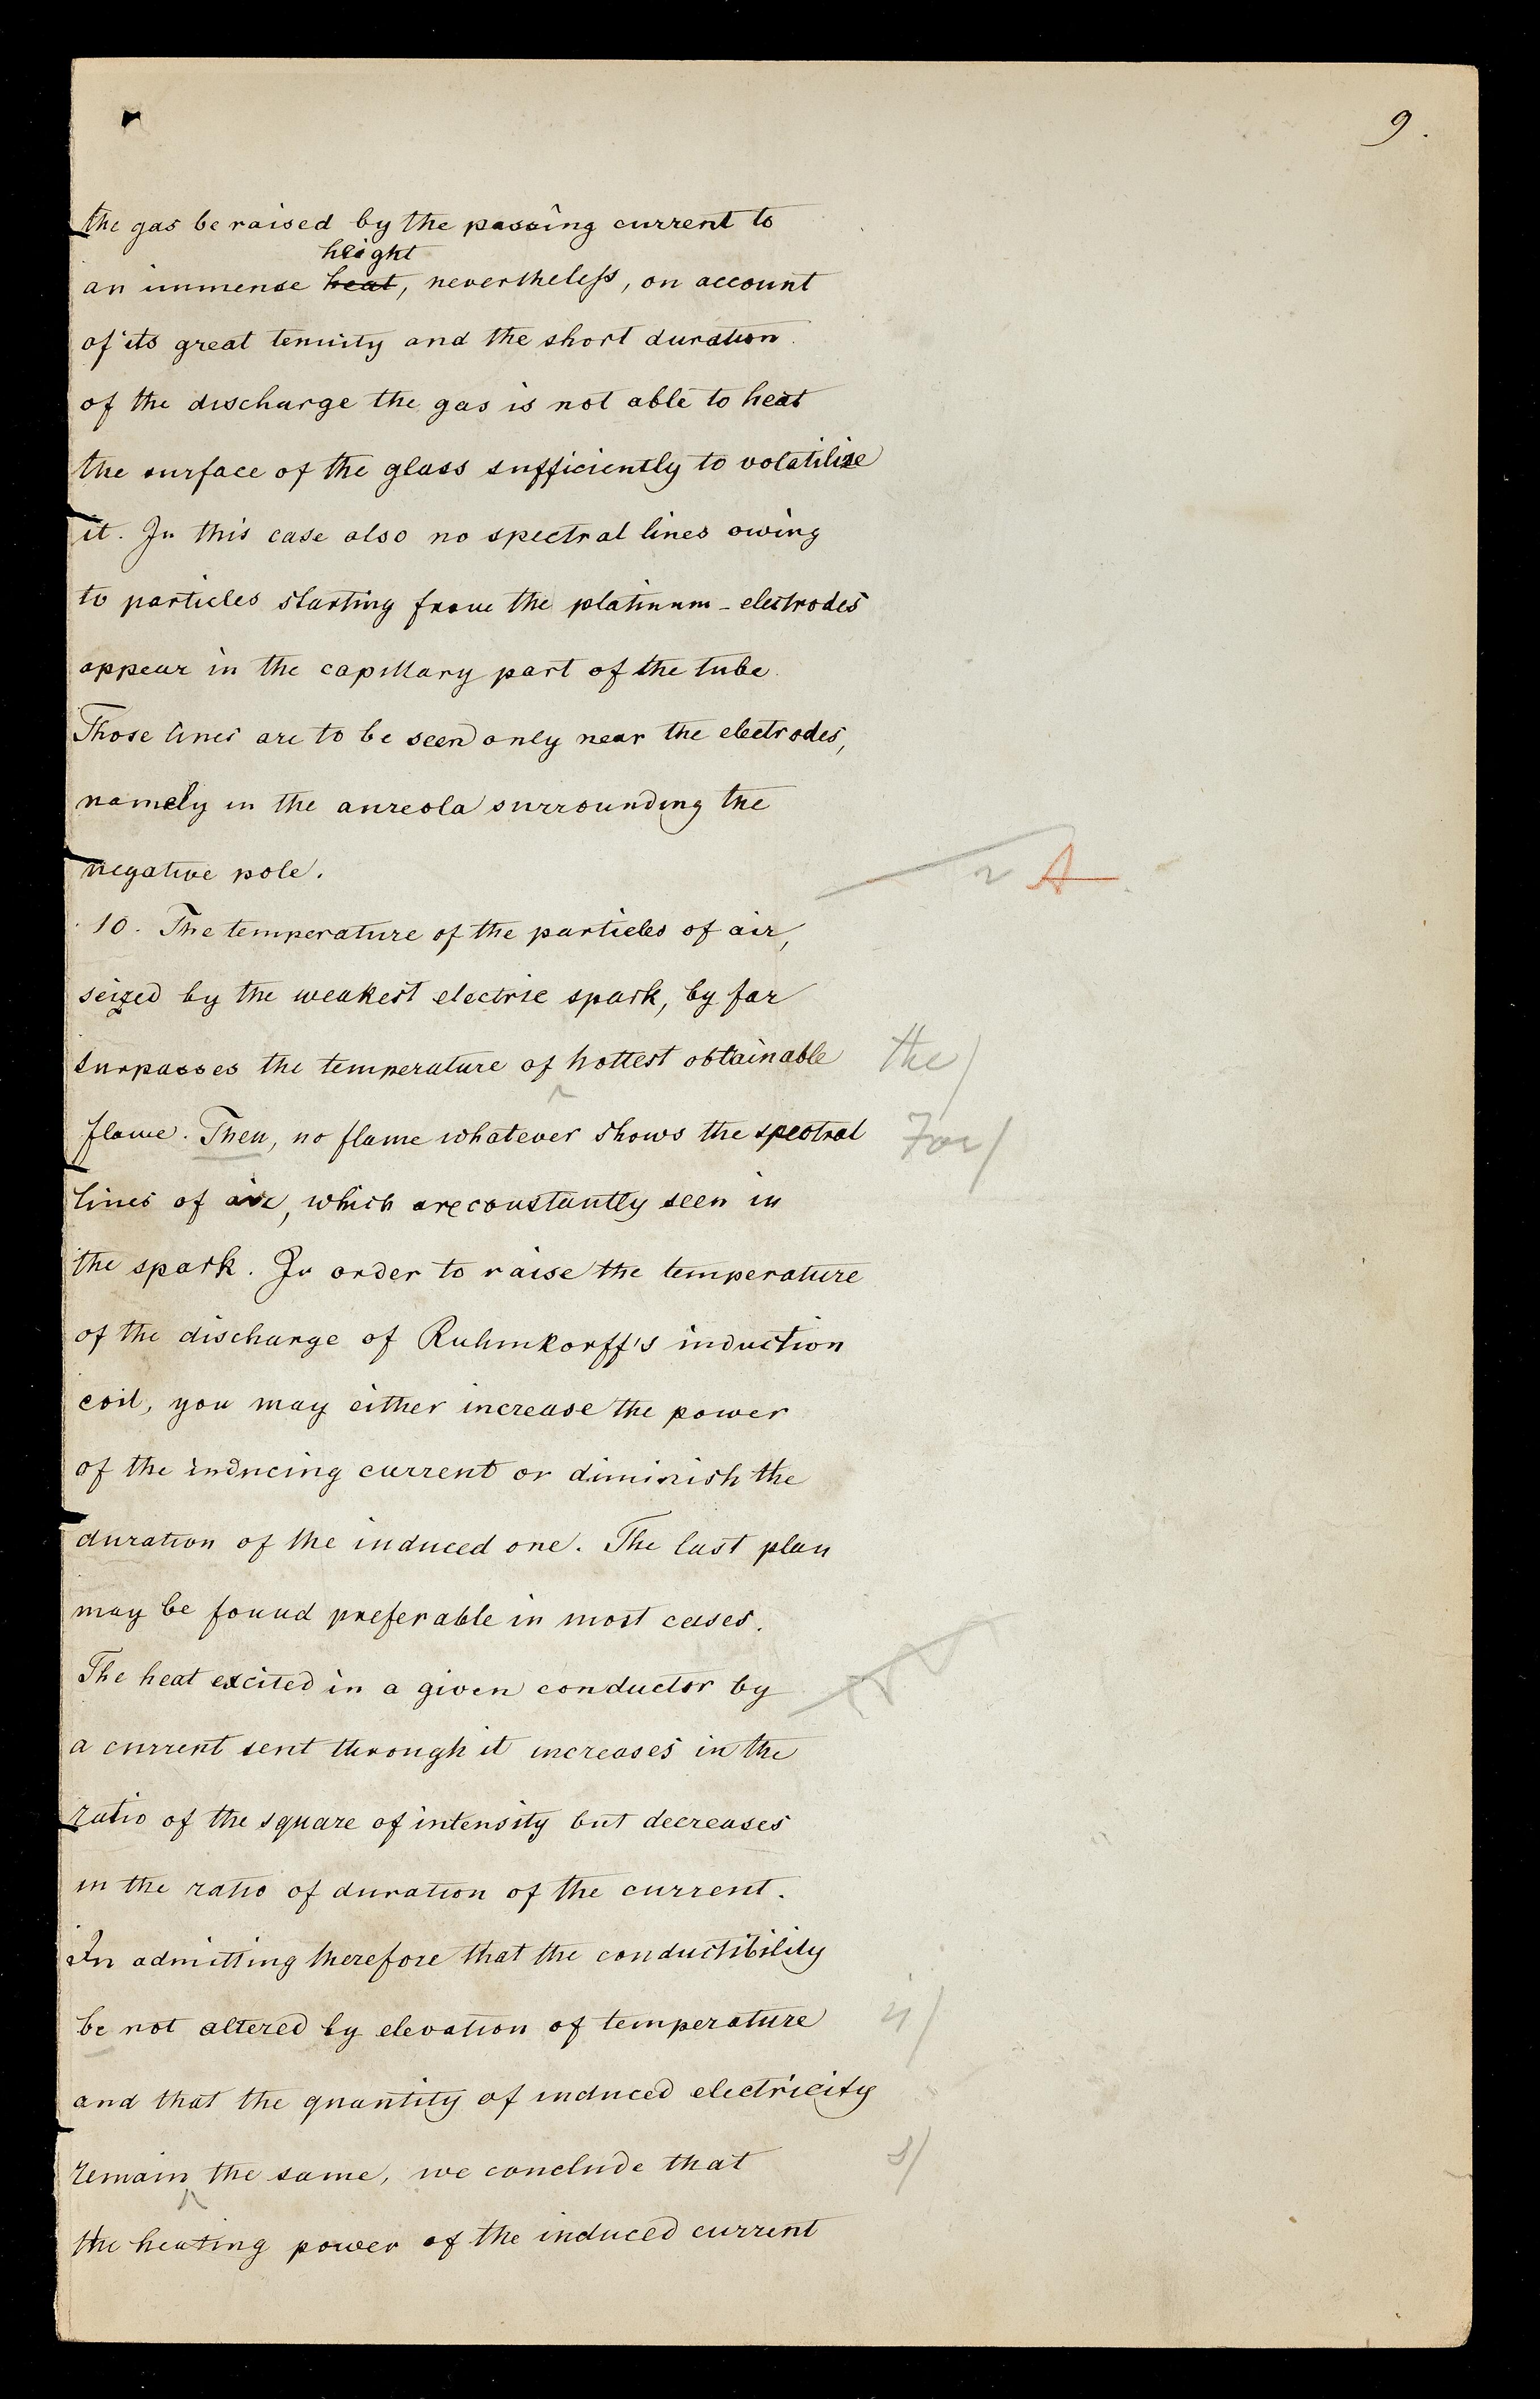 9.
the gas be raised by the passing current to
height
an immense heat, nevertheless, on account
of its great tenuity and the short duration
of the discharge the gas is not able to heat
the surface of the glass sufficiently to volatilize
it. In this case also no spectral lines owing
to particles starting from the platinum-electrodes
appear in the capillary part of the tube.
Those lines are to be seen only near the electrodes,
namely in the aureola surrounding the
negative pole.
10. The temperature of the particles of air,
seized by the weakest electric spark, by far
surpasses the temperature of hottest obtainable the/
flame. Then, no flame whatever shows the spectral For/
lines of air, which are constantly seen in
the spark. In order to raise the temperature
of the discharge of Ruhmkorff's induction
coil, you may either increase the power
of the inducing current or diminish the
duration of the induced one. The last plan
may be found preferable in most cases.
The heat excited in a given conductor by
a current sent through it increases in the
ratio of the square of intensity but decreases
in the ratio of duration of the current.
In admitting therefore that the conductibility
be not altered by elevation of temperature
and that the quantity of induced electricity
remain the same, we conclude that s/
the heating power of the induced current